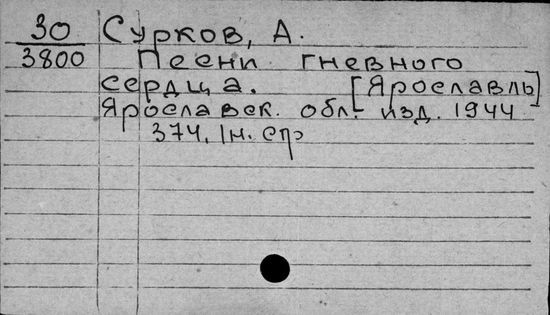 30 Сурков, А.
3800 Песни гневного
сердца. [Ярославль]
Ярославск. обл. изд. 1944
374, 1н. стр